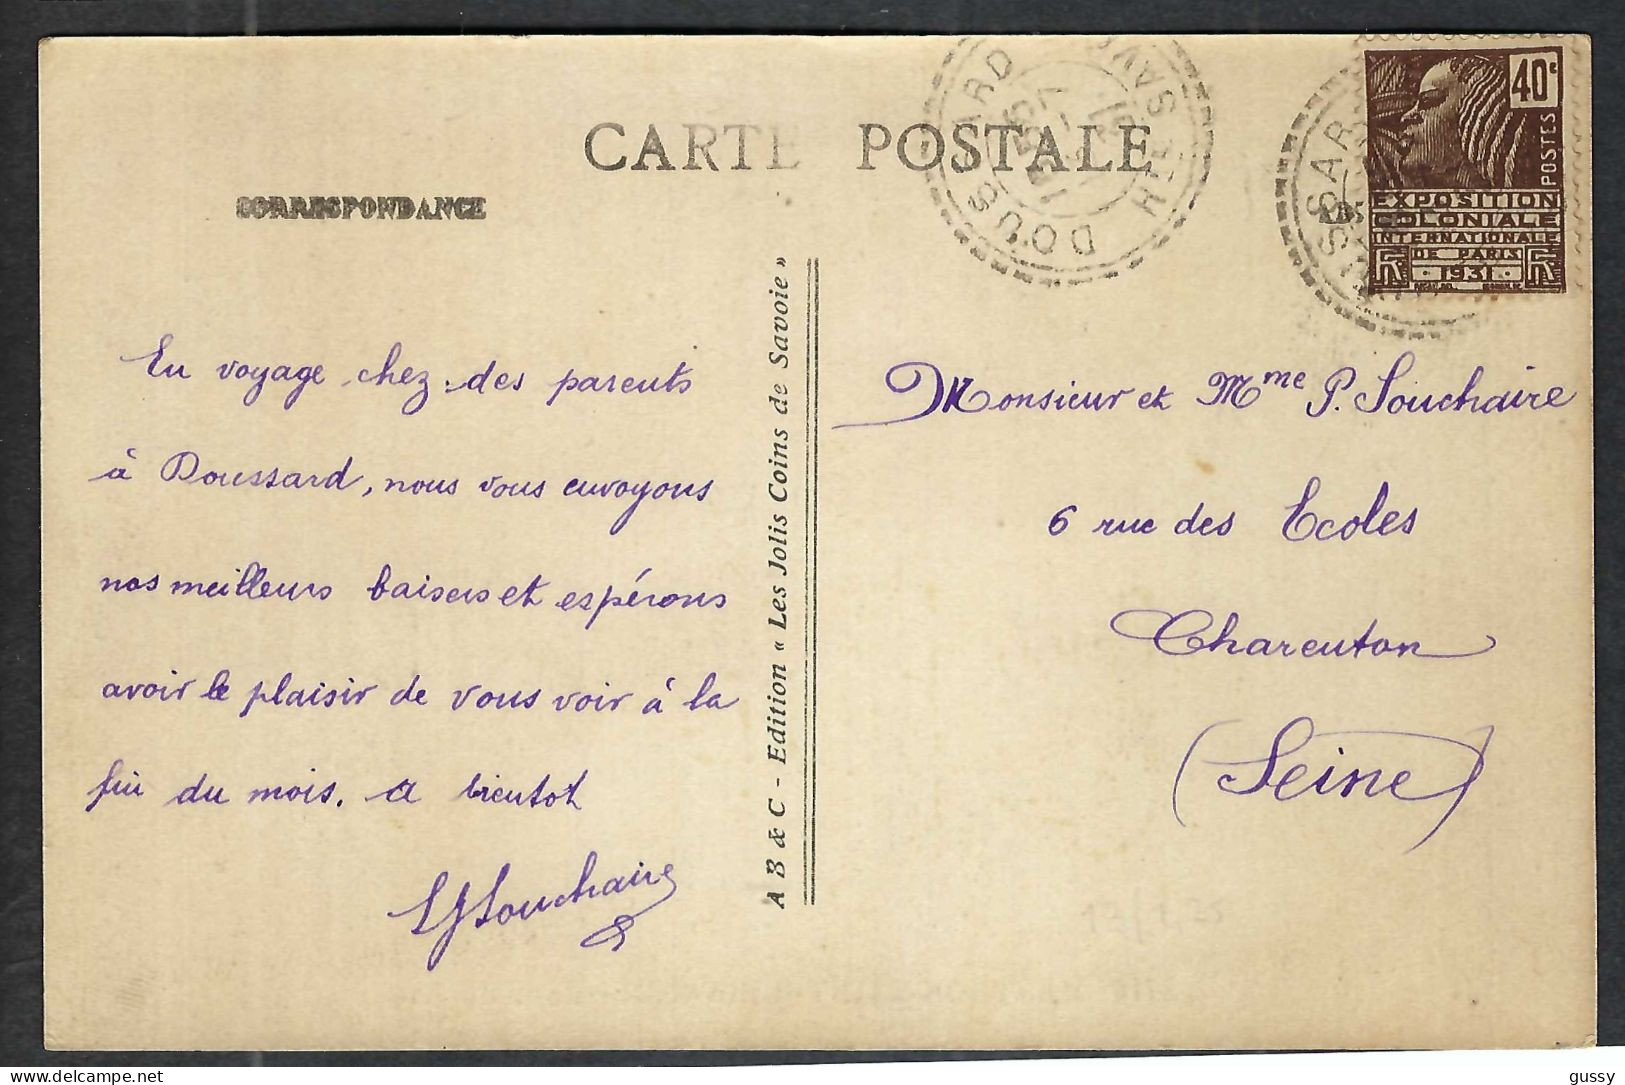 CARTE POSTALE
CORRESPONDANCE
En voyage chez des parents
à Doussard, nous vous envoyons
nos meilleurs baisers et espérons
avoir le plaisir de vous voir à la
fin du mois. a bientot
LJSouchaire
A B & C - Edition « Les Jolis Coins de Savoie »
DOUSSARD
HTE SAV
SSAR
40c
POSTES
EXPOSITION
COLONIALE
INTERNATIONALE
DE PARIS
RF 1931 RF
Monsieur et Mme P. Souchaire
6 rue des Ecoles
Charenton
(Seine)
gussy